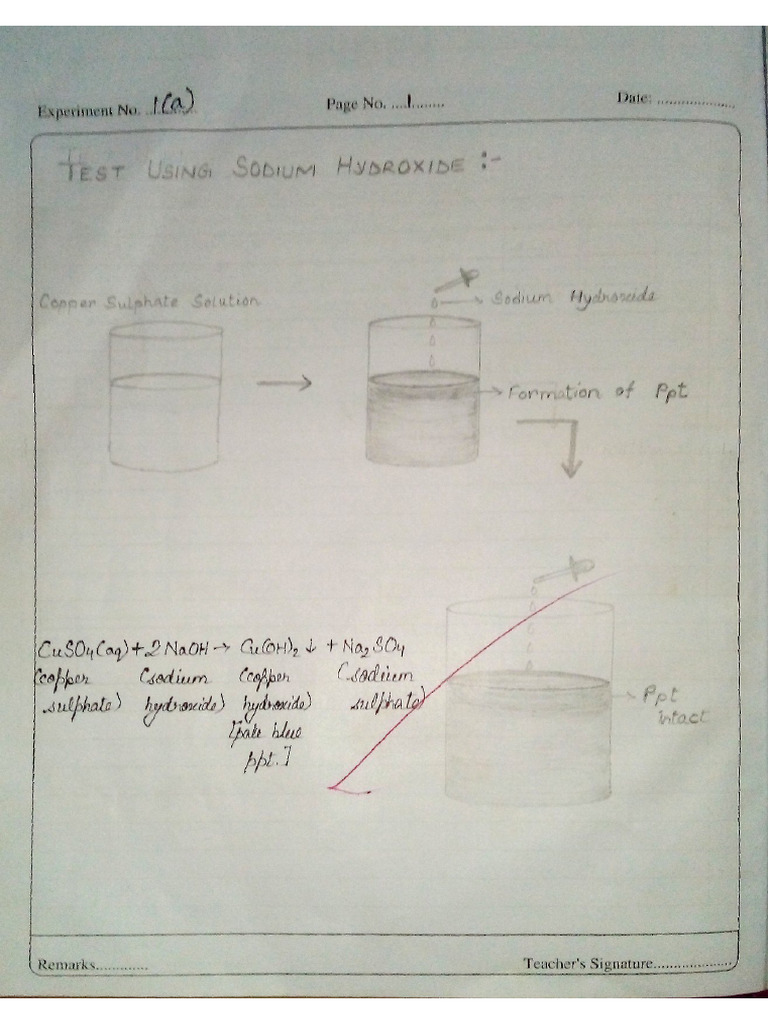 Experiment No. 1(a) Page No. ....1........ Date: ....................
TEST USING SODIUM HYDROXIDE :-
Copper Sulphate Solution
Sodium Hydroxide
Formation of Ppt
CuSO4(aq) + 2NaOH → Cu(OH)2 ↓ + Na2SO4
(copper (sodium (copper (sodium
sulphate) hydroxide) hydroxide) sulphate)
[pale blue
ppt.]
Ppt
intact
Remarks............. Teacher's Signature....................